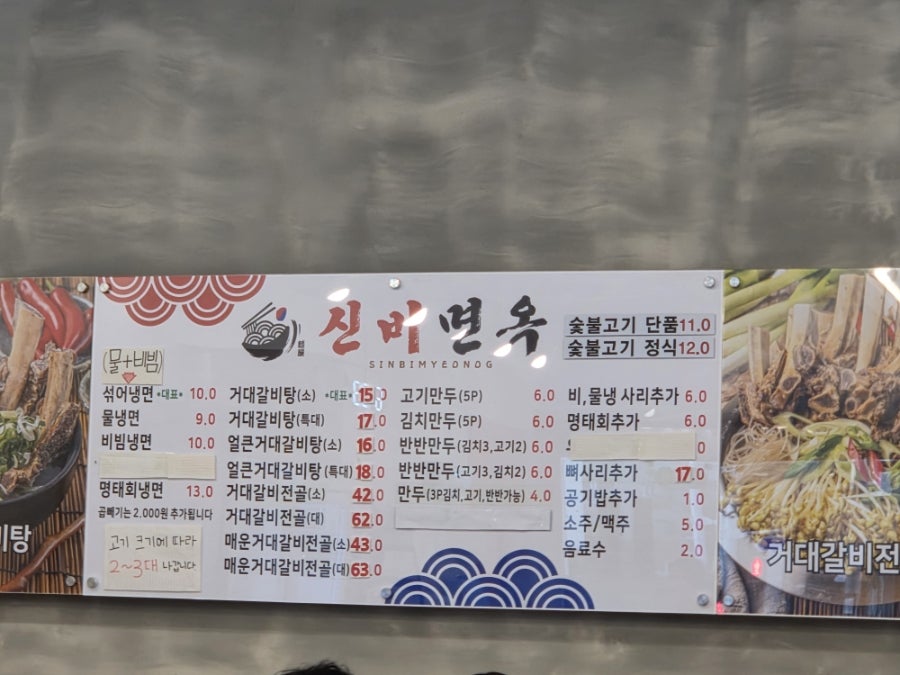 신비면옥
SINBIMYEONOG
麵屋
숯불고기 단품 11.0
숯불고기 정식 12.0
(물+비빔)
섞어냉면 *대표* 10.0
물냉면 9.0
비빔냉면 10.0
명태회냉면 13.0
곱빼기는 2.000원 추가됩니다
고기 크기에 따라
2~3대 나갑니다
거대갈비탕(소) *대표* 15.0
거대갈비탕(특대) 17.0
얼큰거대갈비탕(소) 16.0
얼큰거대갈비탕(특대) 18.0
거대갈비전골(소) 42.0
거대갈비전골(대) 62.0
매운거대갈비전골(소) 43.0
매운거대갈비전골(대) 63.0
고기만두(5P) 6.0
김치만두(5P) 6.0
반반만두(김치3,고기2) 6.0
반반만두(고기3,김치2) 6.0
만두(3P김치,고기,반반가능) 4.0
비,물냉 사리추가 6.0
명태회추가 6.0
뼈사리추가 17.0
공기밥추가 1.0
소주/맥주 5.0
음료수 2.0
비탕
거대갈비전